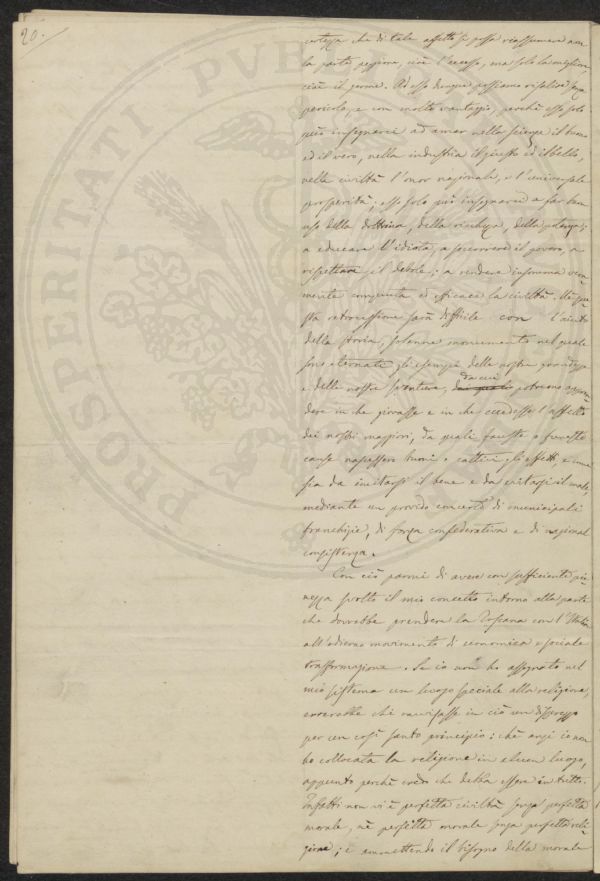 20.
certezza che di tale assetto si possa riassumere non
la parte peggiore, cioè l'eccesso, ma solo la migliore,
cioè il germe. Ad esso dunque possiamo risalire senza
pericolo, e con molto vantaggio, perchè esso solo
può insegnarci ad amar nelle scienze il buono
ed il vero, nella industria il giusto ed il bello,
nella civiltà l'onor nazionale, e l'universale
prosperità; esso solo può insegnarci a far buon
uso della dottrina, della ricchezza, della potenza;
a educare l'idiota, a soccorrere il povero, a
rispettare il debole; a rendere insomma vera-
mente compiuta ed efficace la civiltà. Nè que-
sta retrocessione sarà difficile con l'aiuto
della storia, solenne monumento nel quale
sono eternate gli esempi delle nostre grandezze
e delle nostre sventure, da cui potremo appren-
dere in che giovasse e in che eccedesse l'assetto
dei nostri maggiori, da quali fauste o funeste
cause nascessero buoni o cattivi gli effetti, e come
sia da imitarsi il bene e da evitarsi il male,
mediante un provido concerto di municipali
franchigie, di forza confederativa e di nazional
consistenza.
Con ciò parmi di avere con sufficiente pie-
nezza svolto il mio concetto intorno alla parte
che dovrebbe prendere la Toscana con l'Italia
all'odierno movimento di economica e sociale
trasformazione. Se io non ho assegnato nel
mio sistema un luogo speciale alla religione,
errerebbe chi ravvisasse in ciò un disprezzo
per un così santo principio: chè anzi io non
ho collocata la religione in alcun luogo,
appunto perchè credo che debba essere in tutti.
Infatti non vi è perfetta civiltà senza perfetta
morale, nè perfetta morale senza perfetta reli-
gione; e ammettendo il bisogno della morale
PROSPERITATI PVBLICAE